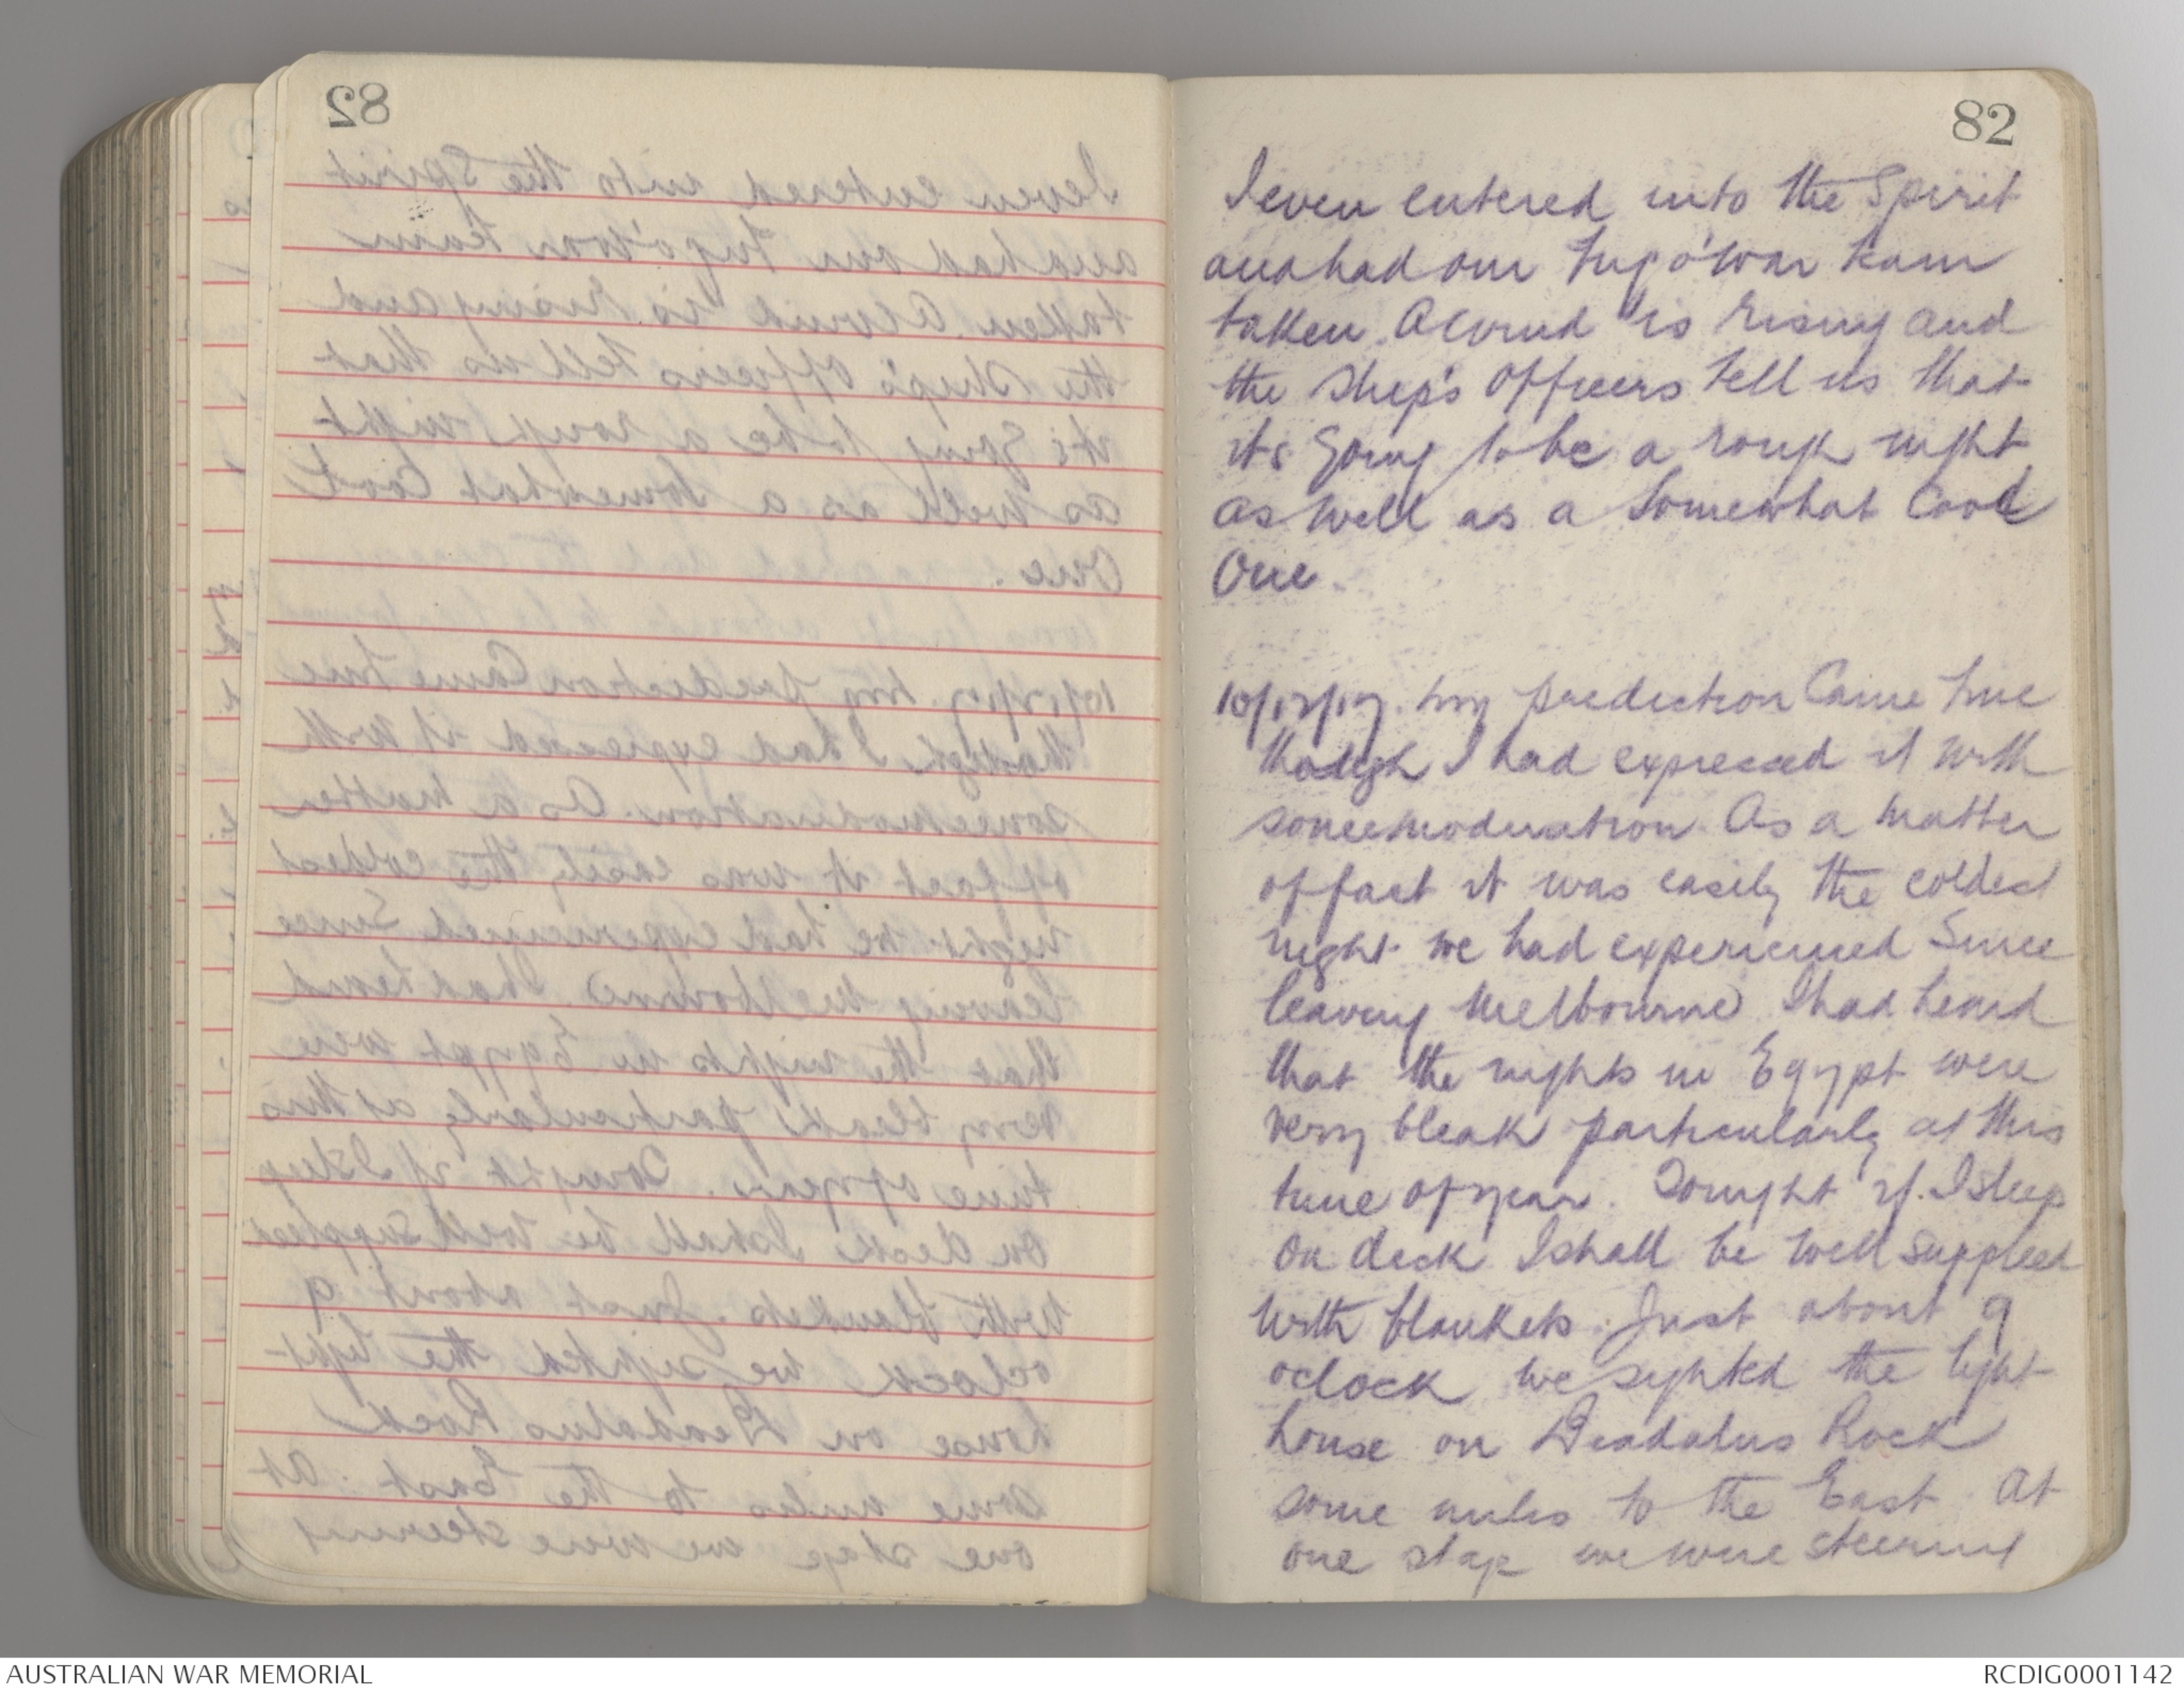 82
I even entered into the Spirit
and had our Tug o'War team
taken. A wind is rising and
the Ship's Officers tell us that
its going to be a rough night
as well as a somewhat cool
One.
10/12/17. My prediction Came true
though I had expressed it with
some moderation. As a matter
of fact it was easily the coldest
night we had experienced Since
leaving Melbourne. I had heard
that the nights in Egypt were
very bleak particularly at this
time of year. Tonight if I sleep
on deck I shall be well supplied
with blankets. Just about 9
oclock we sighted the light-
house on Deadalus Rock
some miles to the East. At
one stage we were steering
AUSTRALIAN WAR MEMORIAL
RCDIG0001142